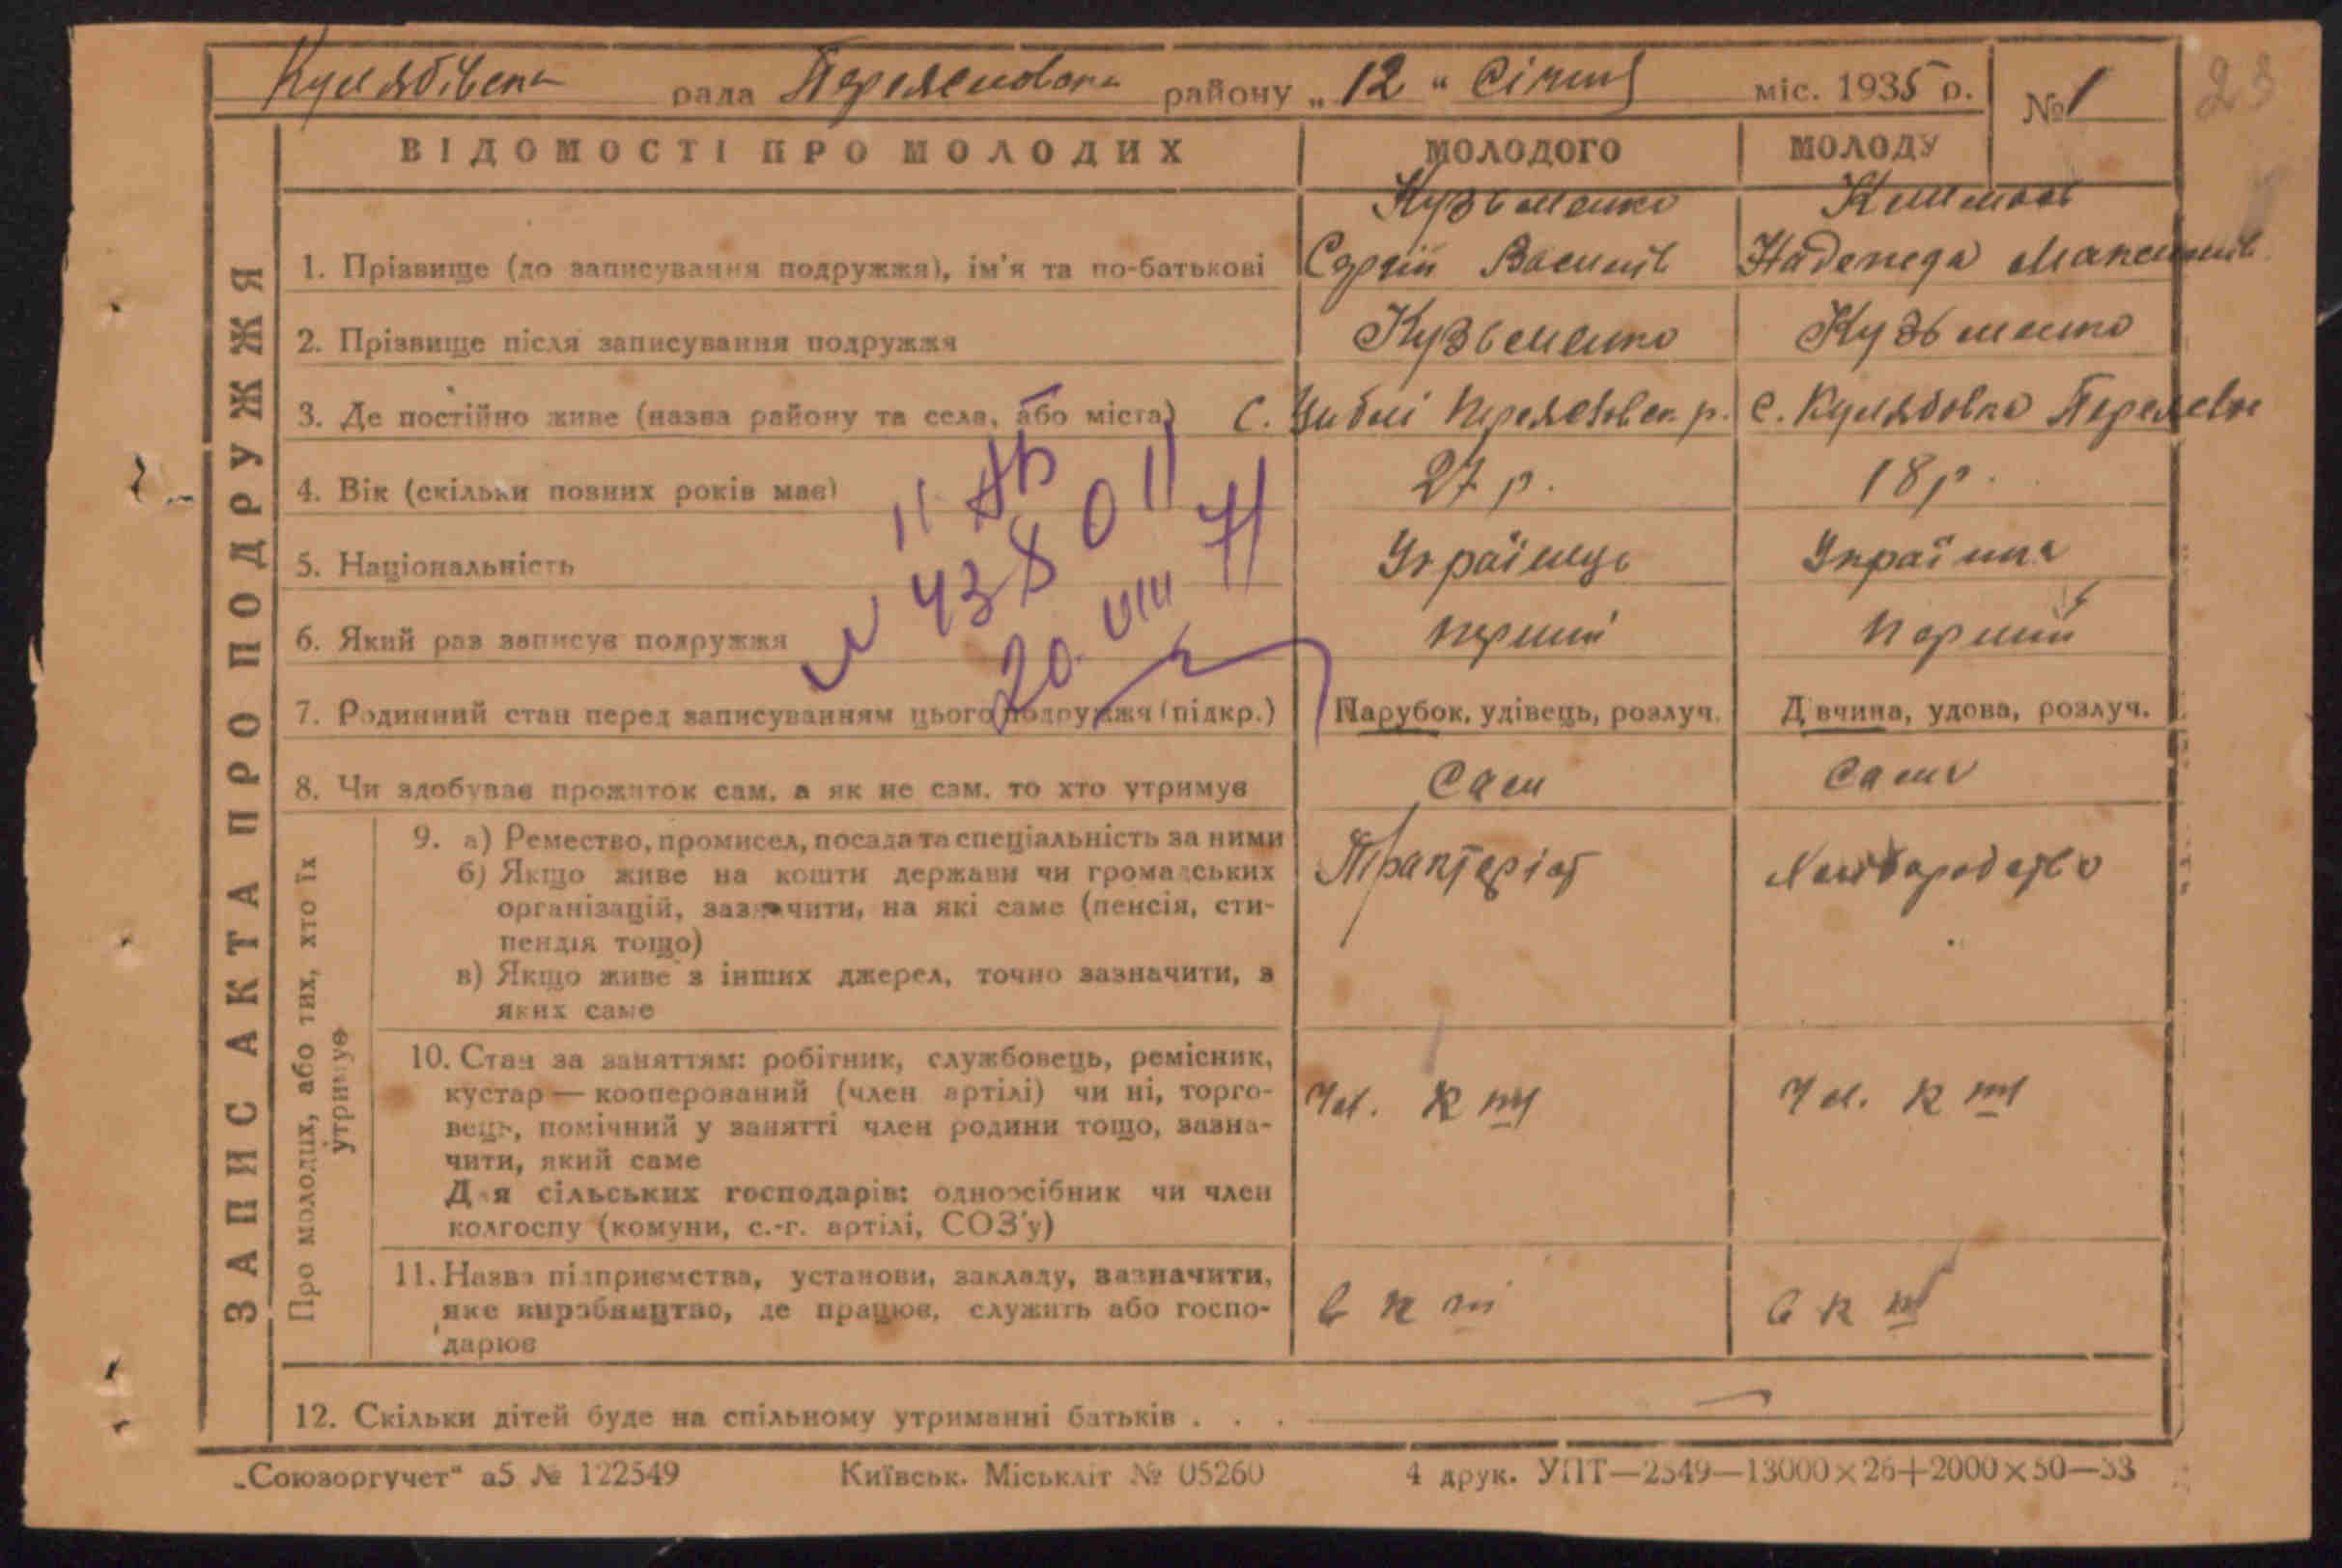 Кулябівська рада Переяславськ. району „12“ Січня міс. 1935 р. № 1
23
ЗАПИС АКТА ПРО ПОДРУЖЖЯ
ВІДОМОСТІ ПРО МОЛОДИХ МОЛОДОГО МОЛОДУ
Кузьменко
1. Прізвище (до записування подружжя), ім'я та по-батькові Сергій Василів Надежда Максимів.
2. Прізвище після записування подружжя Кузьменко Кузьменко
3. Де постійно живе (назва району та села, або міста) С. Циблі Переяславськ. р. С. Кулябовка
4. Вік (скільки повних років має) 27 р. 18 р.
5. Національність Українець Українка
6. Який раз записує подружжя перший перший
7. Родинний стан перед записуванням цього подружжя (підкр.) Парубок, удівець, розлуч. Дівчина, удова, розлуч.
8. Чи здобуває прожиток сам, а як не сам, то хто утримує Сам Сама
Про молодих, або тих, хто їх утримує
9. а) Ремество, промисел, посада та спеціальність за ними Тракторіст
б) Якщо живе на кошти держави чи громадських
організацій, зазначити, на які саме (пенсія, сти-
пендія тощо)
в) Якщо живе з інших джерел, точно зазначити, з
яких саме
10. Стан за заняттям: робітник, службовець, ремісник,
кустар — кооперований (член артілі) чи ні, торго- Чл. к Чл. к
вець, помічний у занятті член родини тощо, зазна-
чити, який саме
Для сільських господарів: одноосібник чи член
колгоспу (комуни, с.-г. артілі, СОЗ'у)
11. Назва підприємства, установи, закладу, зазначити,
яке виробництво, де працює, служить або госпо- в к в к
дарює
12. Скільки дітей буде на спільному утриманні батьків . . . —
№ 4380
20. VIII
„Союзоргучет“ а5 № 122549 Київськ. Міськліт № 05260 4 друк. УПТ—2549—13000×26+2000×50—33